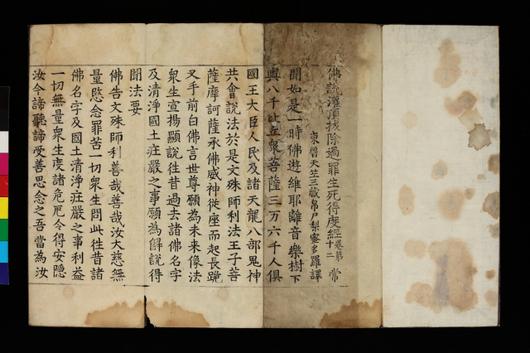 佛說灌頂拔除過罪生死得度經卷第十二 常
東晉天竺三藏帛尸梨蜜多羅譯
聞如是一時佛遊維耶離音樂樹下
與八千比丘眾菩薩三万六千人俱
國王大臣人民及諸天龍八部鬼神
共會說法於是文殊師利法王子菩
薩摩訶薩承佛威神從座而起長跪
叉手前白佛言世尊願為未來像法
眾生宣揚顯說往昔過去諸佛名字
及清淨國土莊嚴之事願為解說得
聞法要
佛告文殊師利善哉善哉汝大慈無
量愍念罪苦一切眾生問此往昔諸
佛名字及國土清淨莊嚴之事利益
一切無量眾生度諸危厄令得安隱
汝今諦聽諦受善思念之吾當為汝